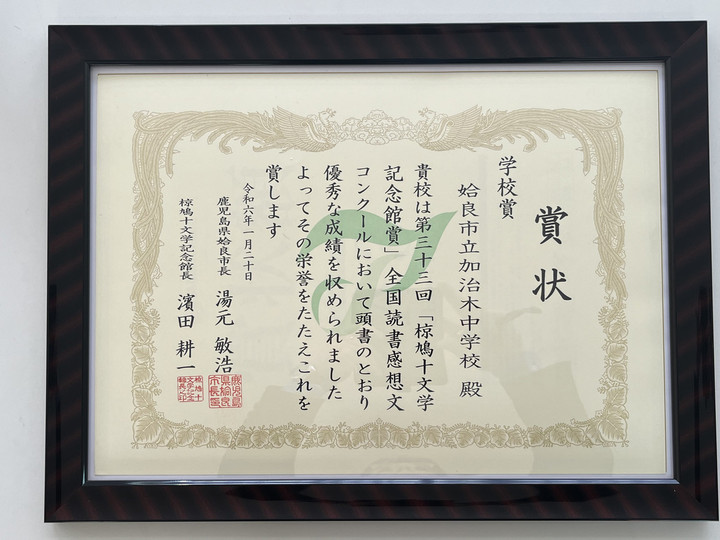 賞状
学校賞
姶良市立加治木中学校 殿
貴校は第三十三回「椋鳩十文学
記念館賞」全国読書感想文
コンクールにおいて頭書のとおり
優秀な成績を収められました
よってその栄誉をたたえこれを
賞します
令和六年一月二十日
鹿児島県姶良市長 湯元 敏浩
椋鳩十文学記念館長 濱田 耕一